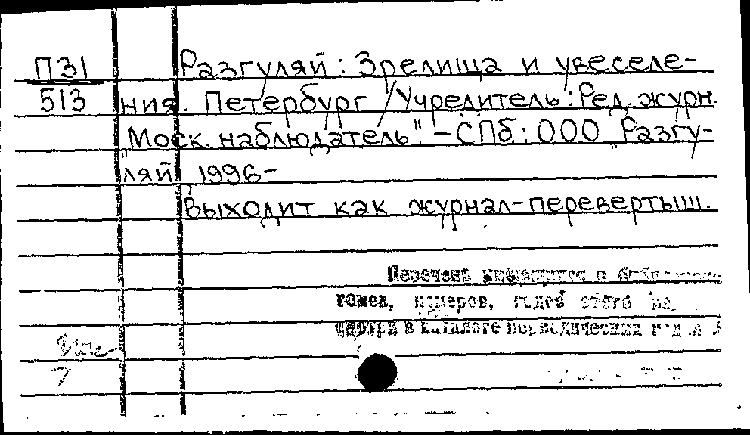 П31 Разгуляй: Зрелища и увеселе-
513 ния. Петербург / Учредитель: Ред. журн.
"Моск. наблюдатель" - СПб: ООО "Разгу-
ляй", 1996-
Выходит как журнал-перевертыш.
Перечень имеющихся в
томов, номеров, годов
смотри в каталоге периодических